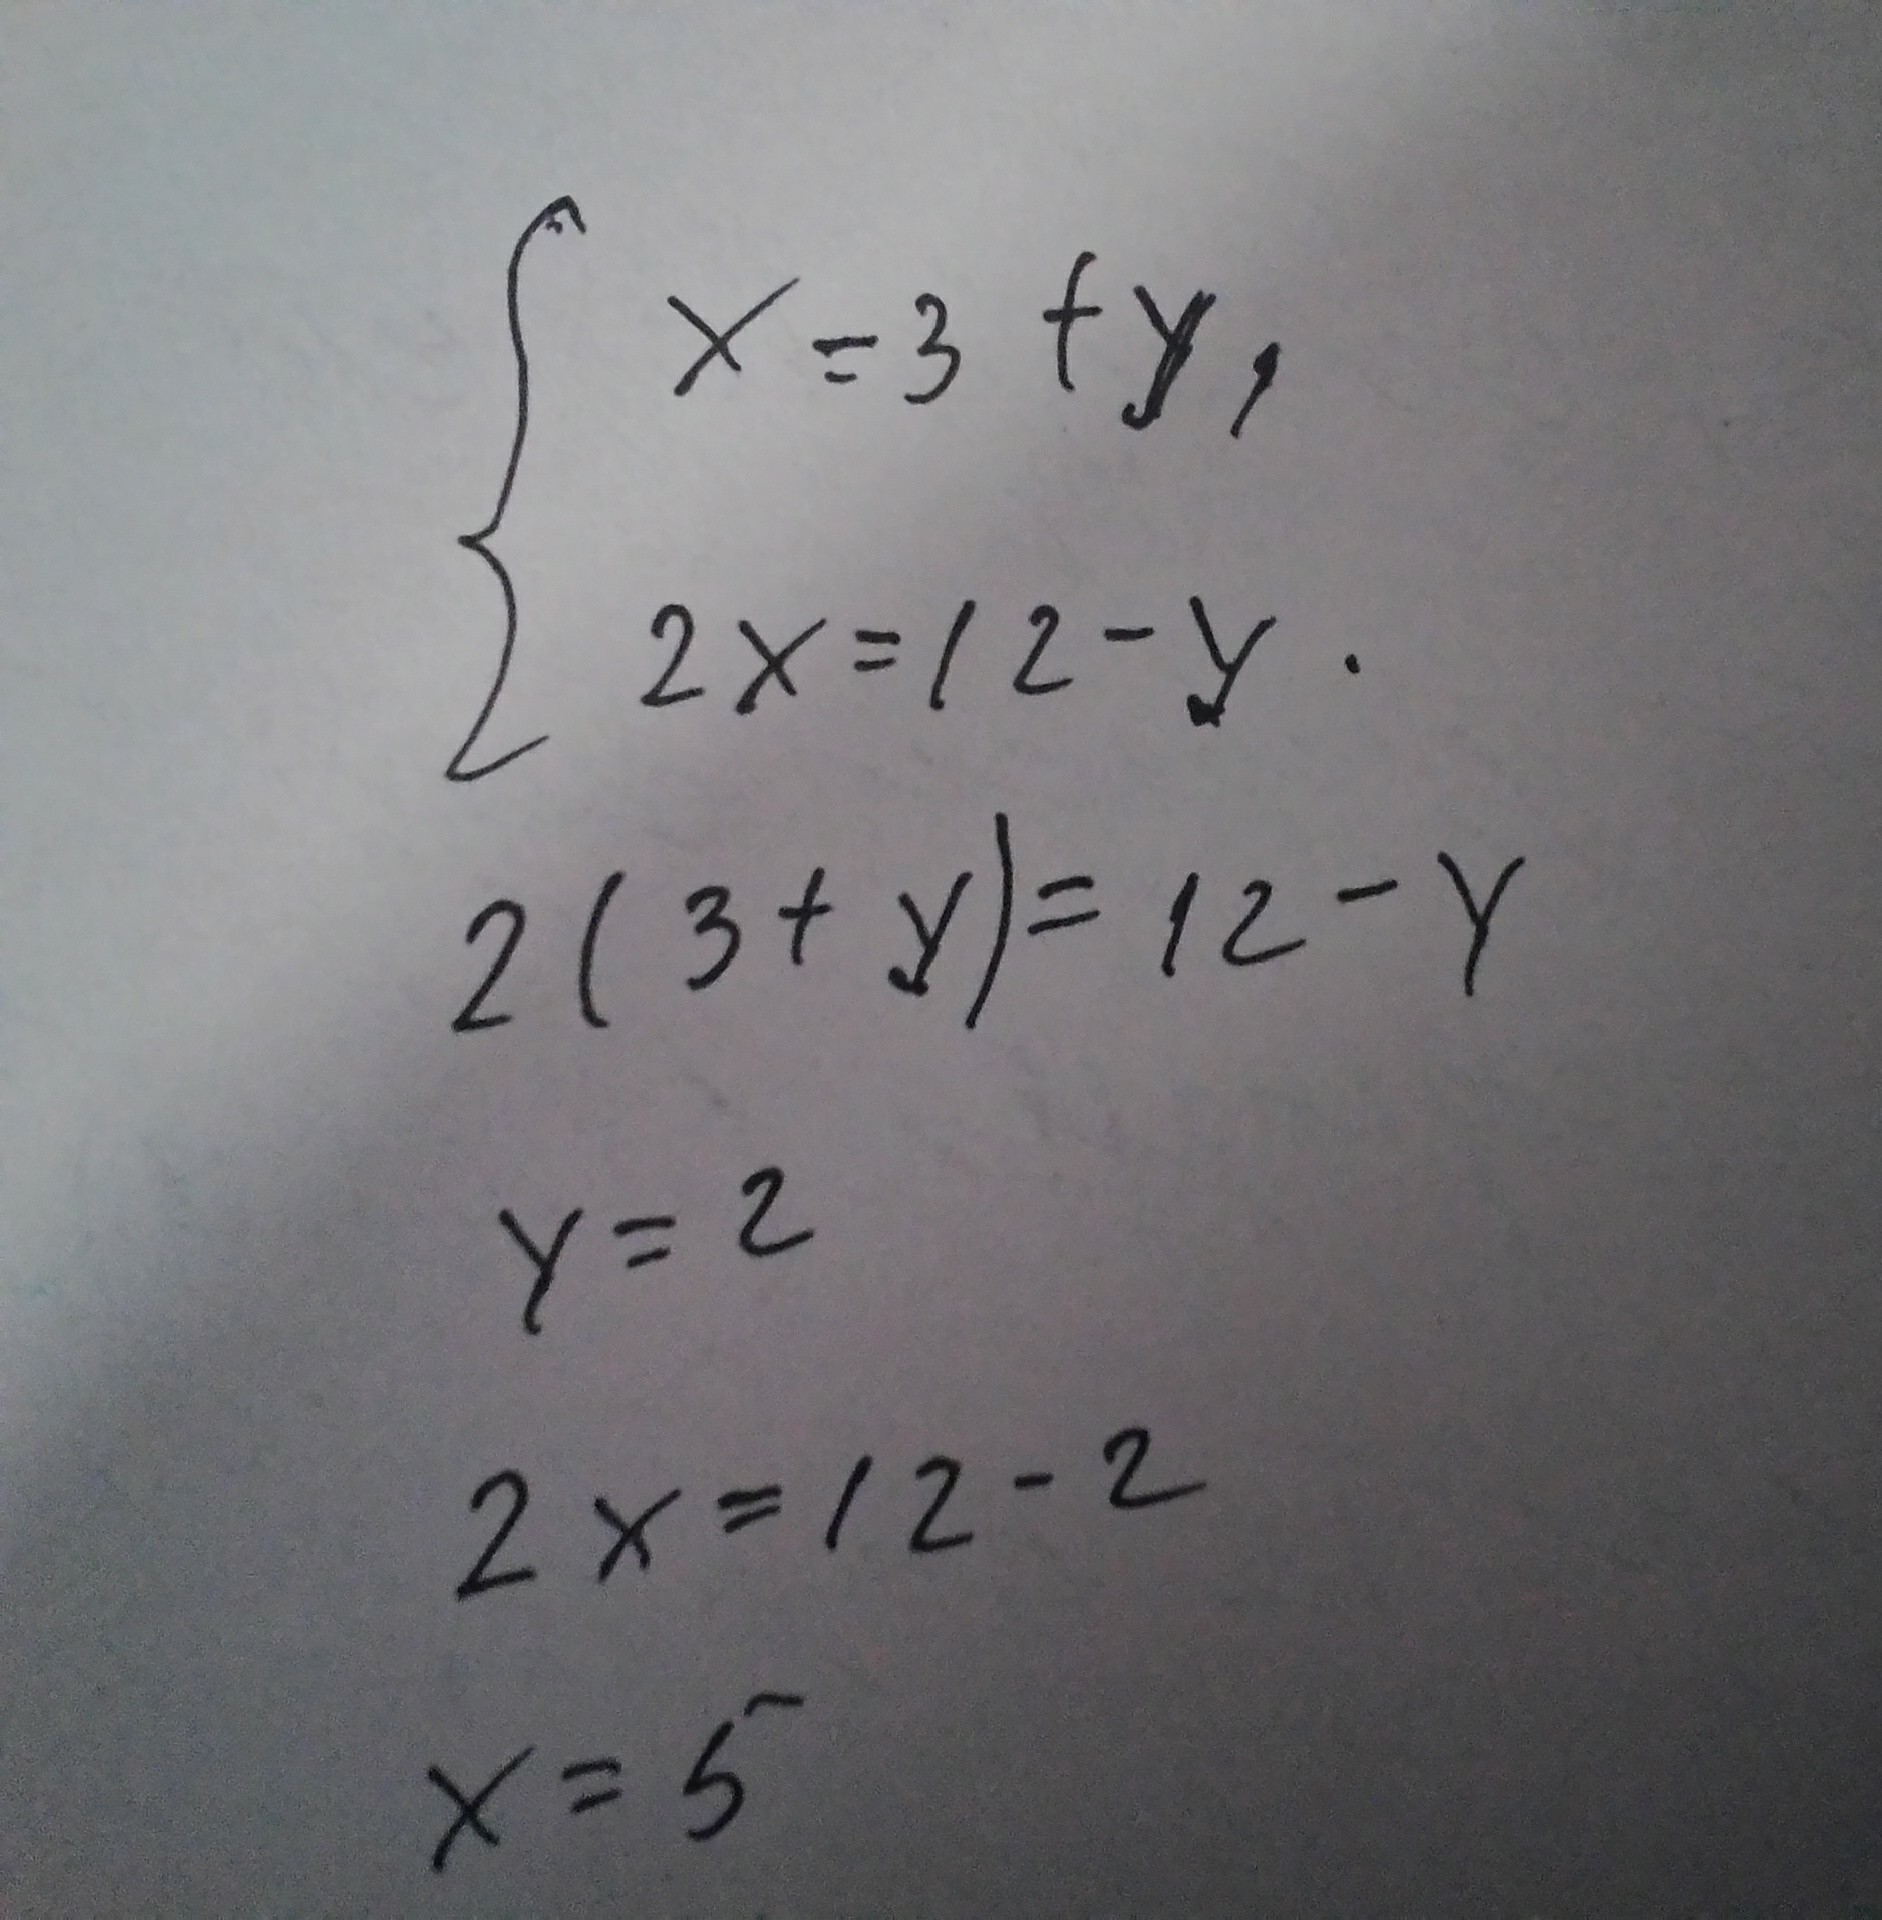 x=3+y,
2x=12-y.
2(3+y)=12-y
y=2
2x=12-2
x=5